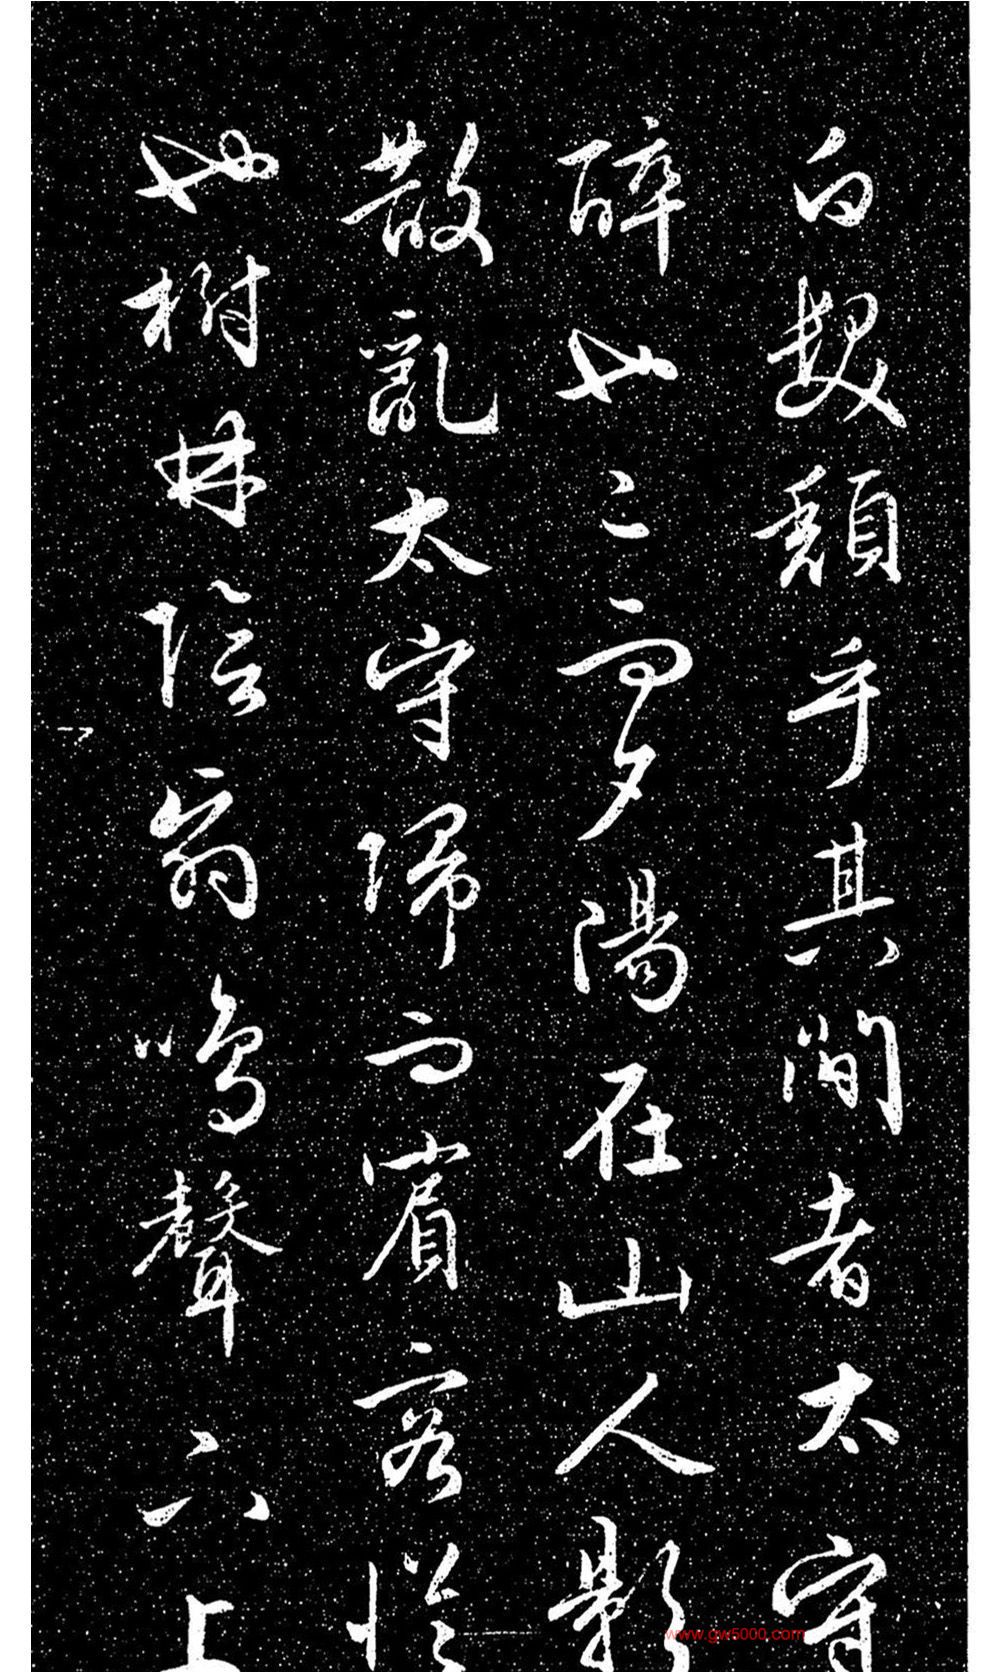 白髮頹乎其間者太守
醉也已而夕陽在山人影
散亂太守歸而賓客從
也樹林陰鳴聲上
www.gw5000.com